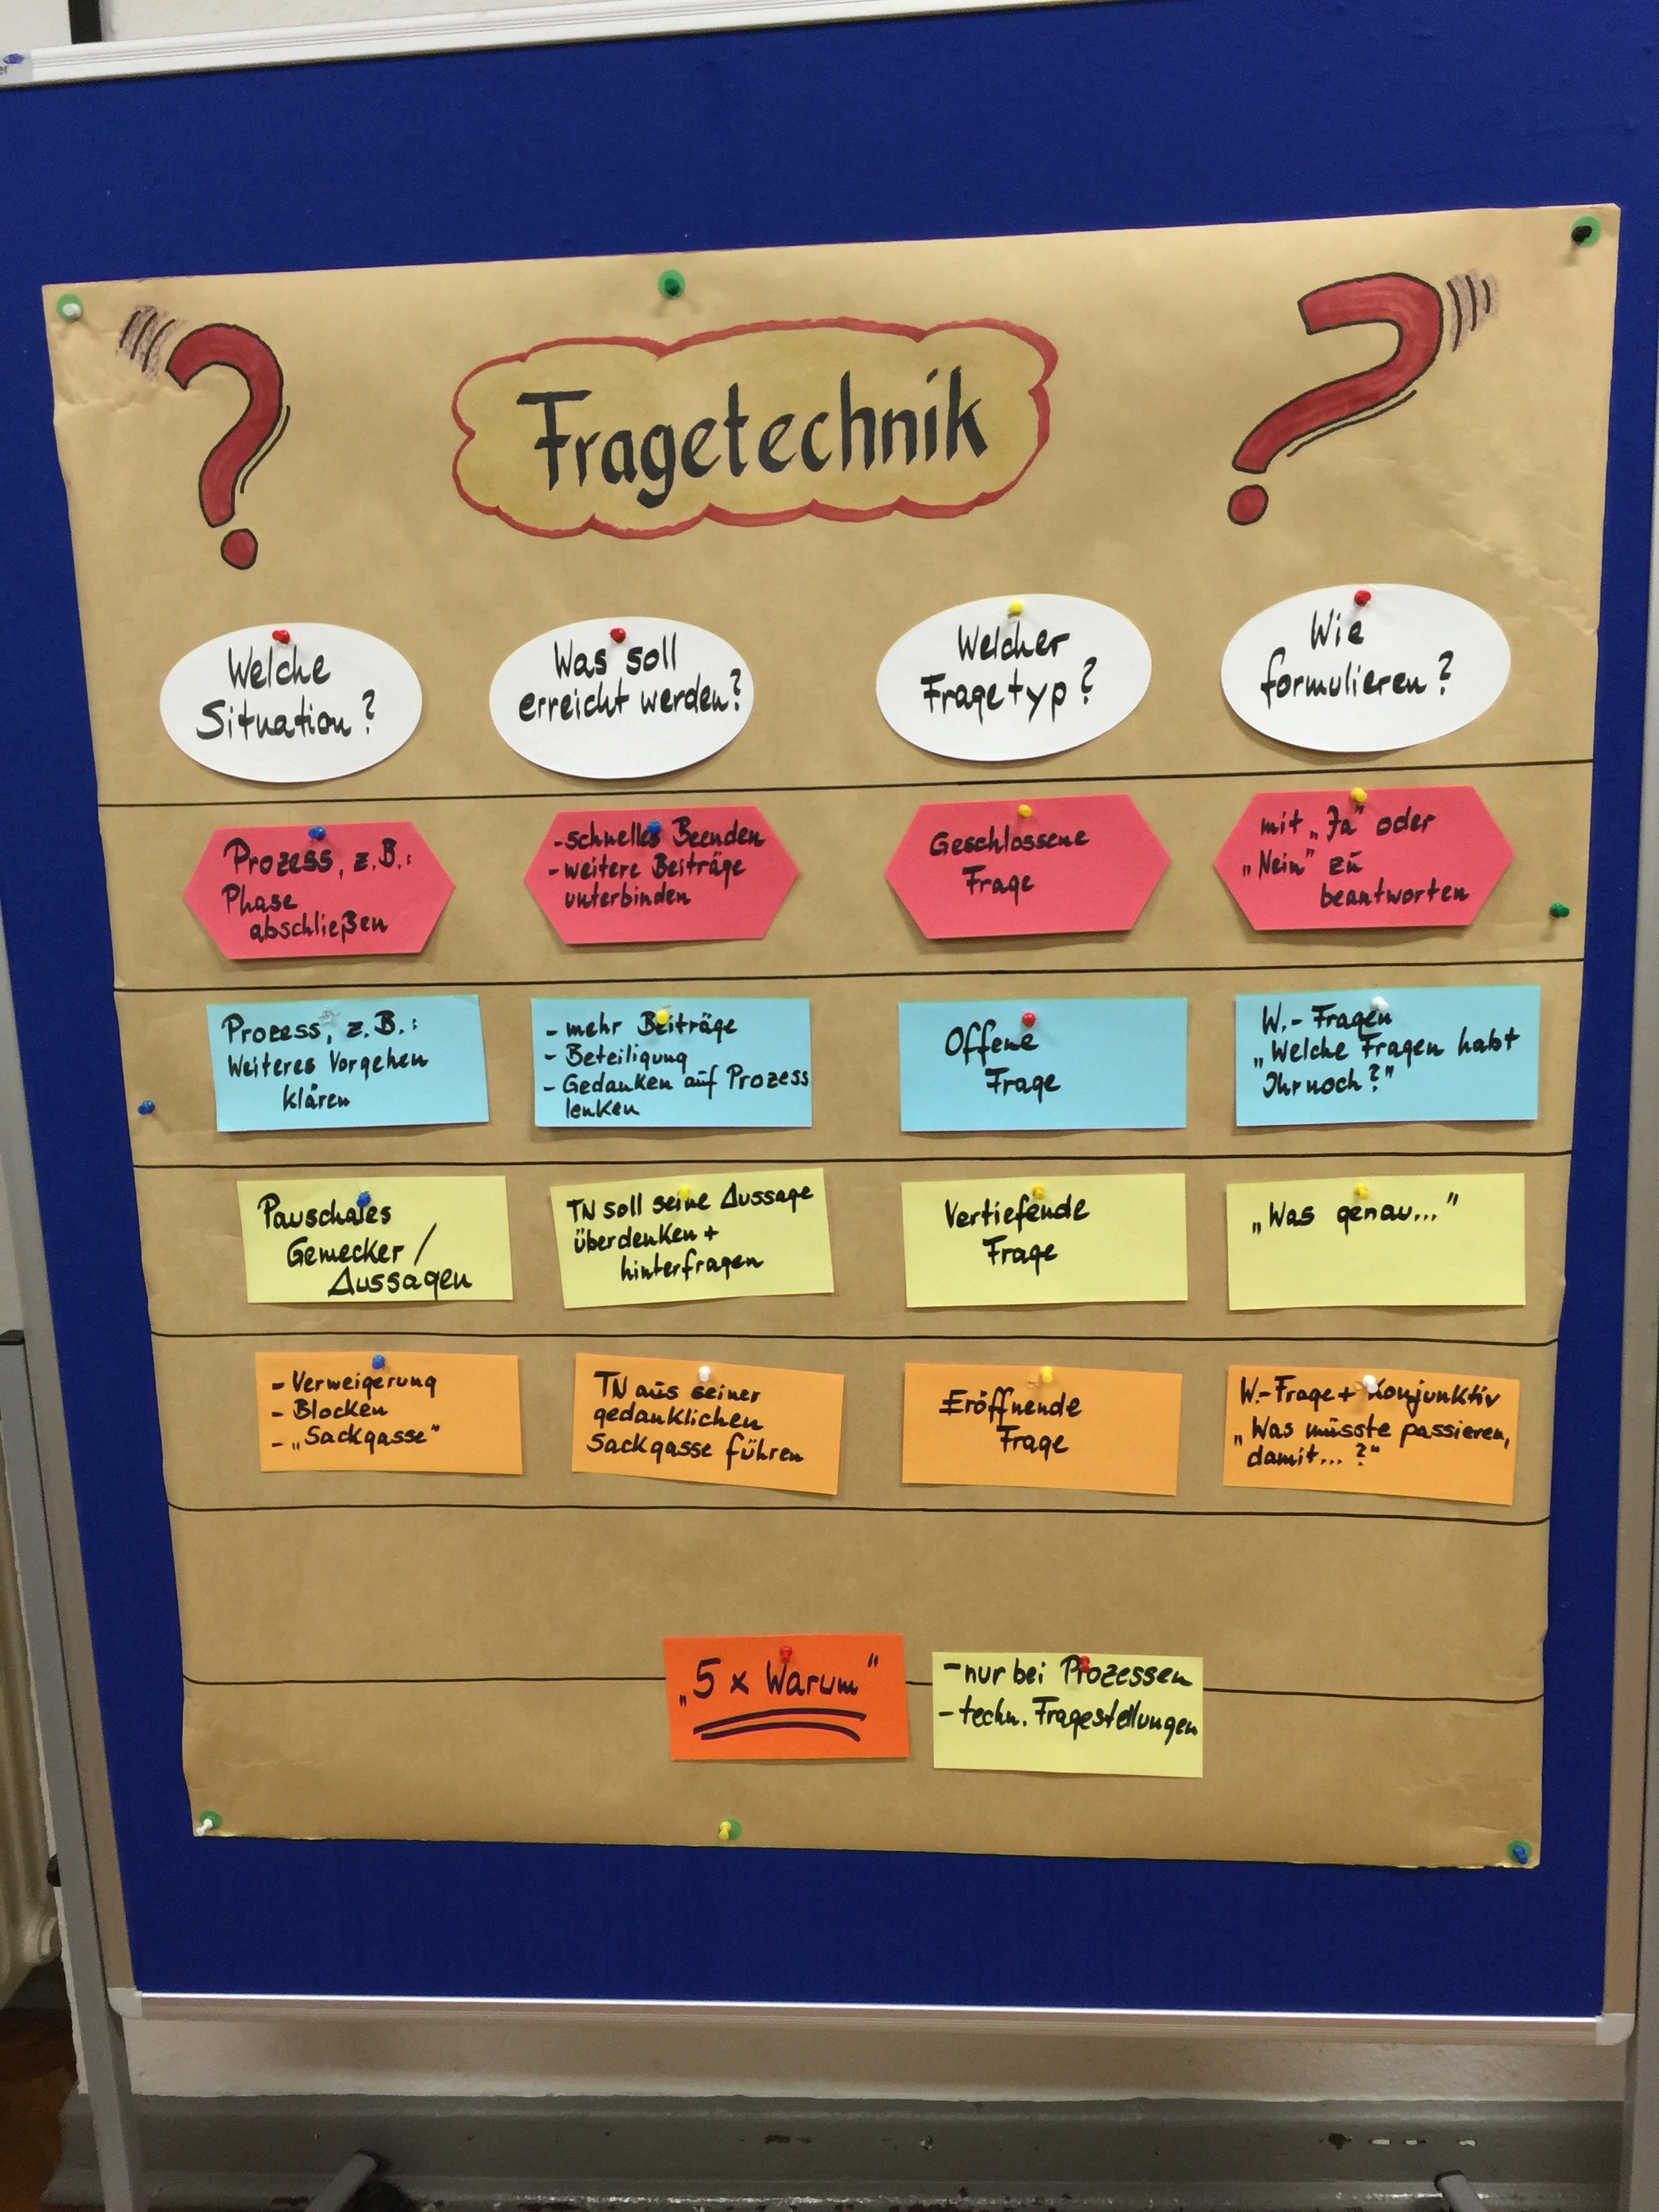 Fragetechnik
Welche
Situation?
Was soll
erreicht werden?
Welcher
Fragetyp?
Wie
formulieren?
Prozess, z.B.:
Phase
abschließen
- schnelles Beenden
- weitere Beiträge
unterbinden
Geschlossene
Frage
mit „Ja" oder
„Nein" zu
beantworten
Prozess, z.B.:
Weiteres Vorgehen
klären
- mehr Beiträge
- Beteiligung
- Gedanken auf Prozess
lenken
Offene
Frage
W.- Fragen
„Welche Fragen habt
Ihr noch?"
Pauschales
Gemecker /
Aussagen
TN soll seine Aussage
überdenken +
hinterfragen
Vertiefende
Frage
„Was genau..."
- Verweigerung
- Blocken
- „Sackgasse"
TN aus seiner
gedanklichen
Sackgasse führen
Eröffnende
Frage
W.-Frage + Konjunktiv
„Was müsste passieren,
damit... ?"
„5 x Warum"
- nur bei Prozessen
- techn. Fragestellungen